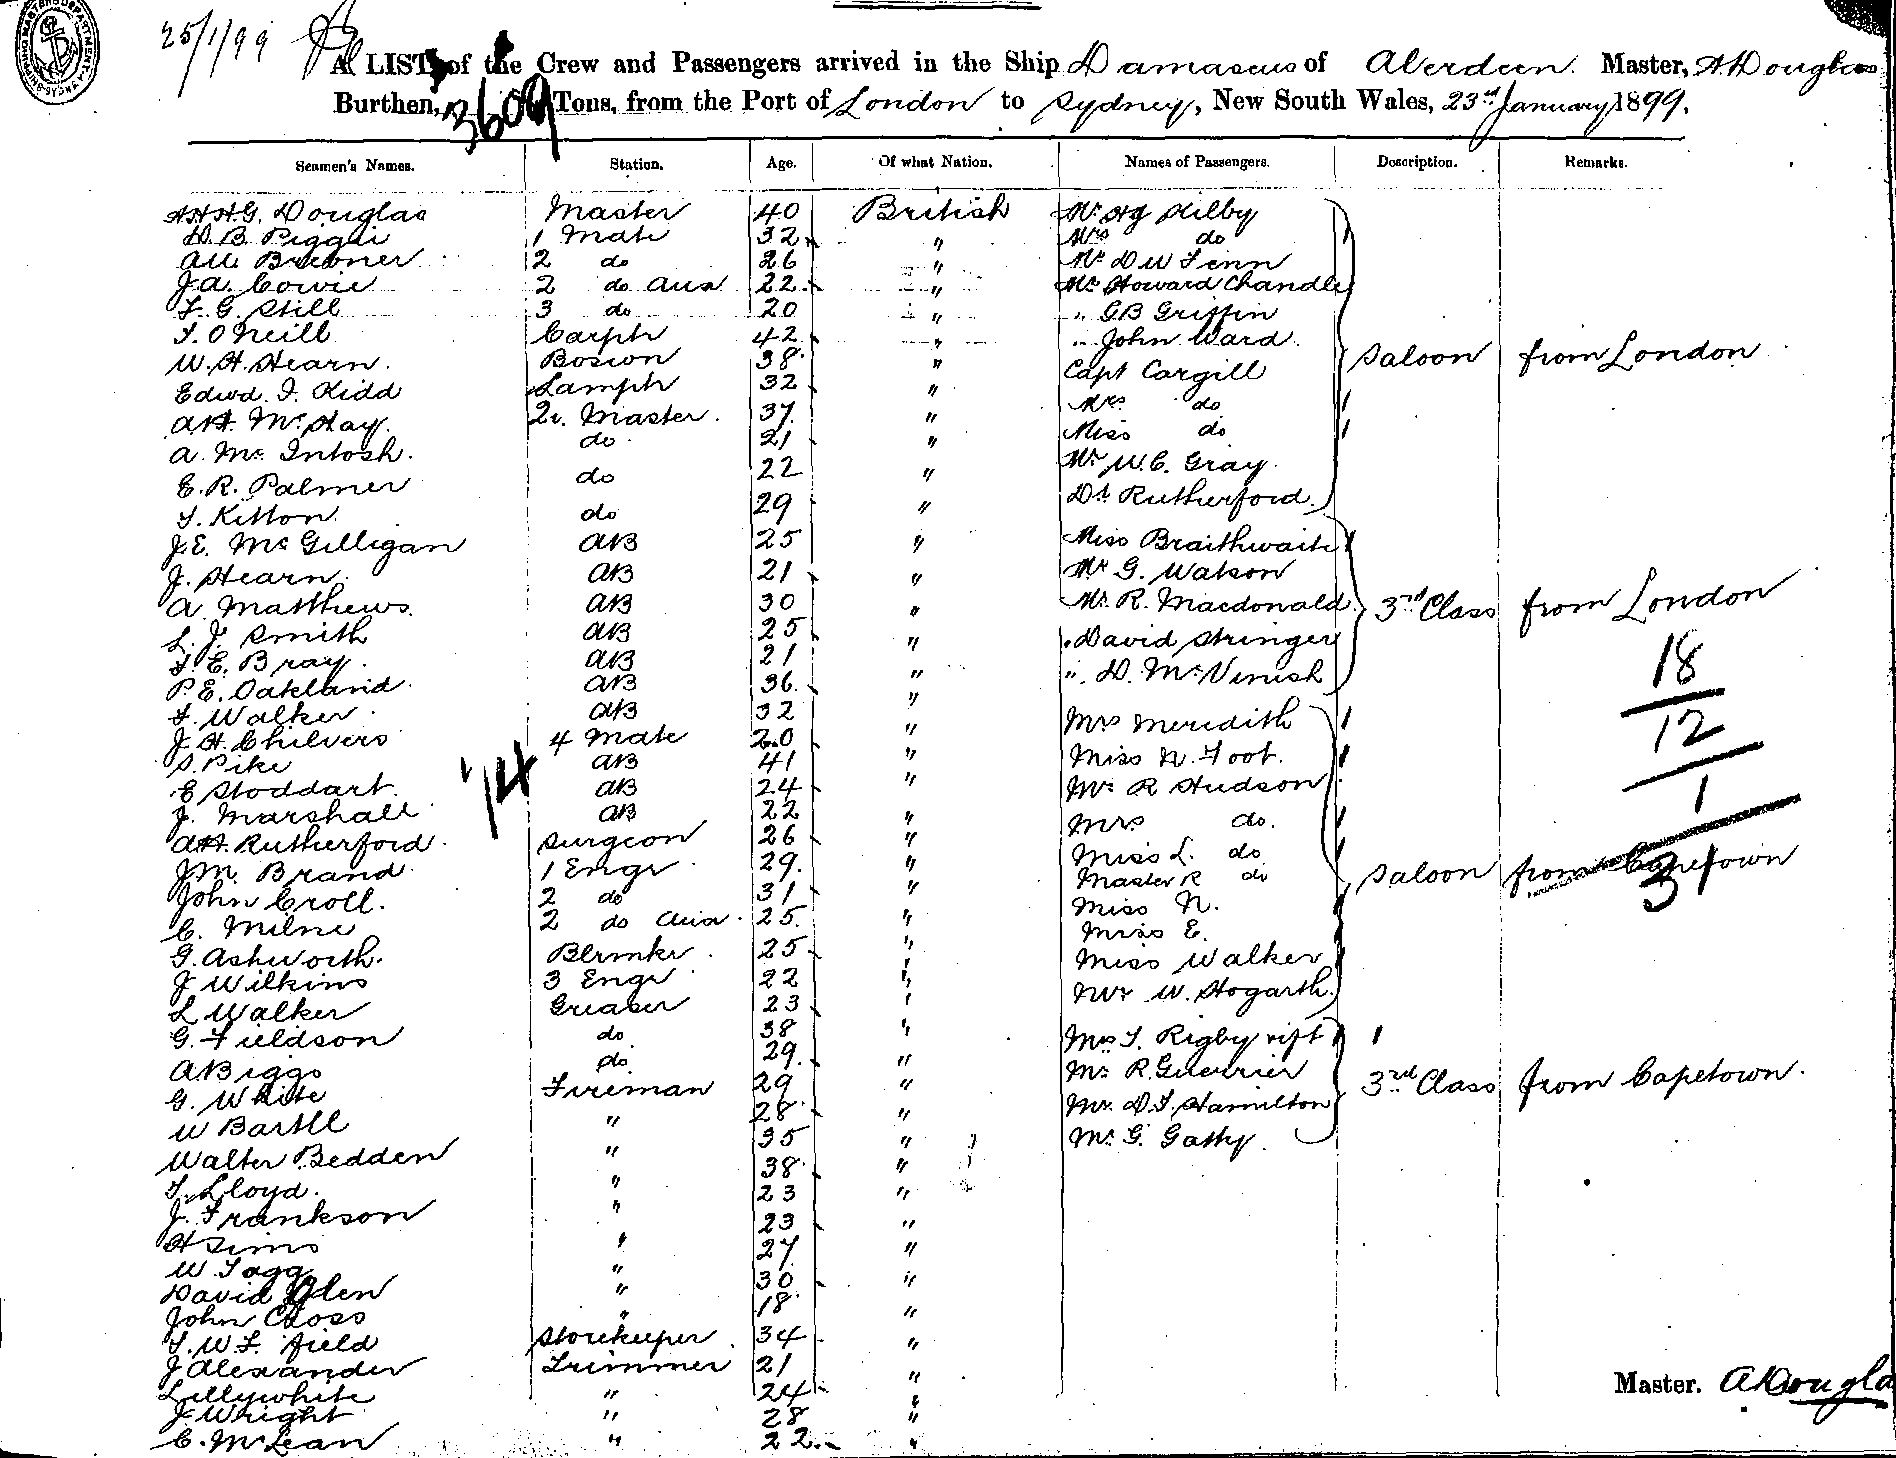 25/1/99
A LIST of the Crew and Passengers arrived in the Ship Damascus of Aberdeen. Master, A Douglas
Burthen, 3609 Tons, from the Port of London to Sydney, New South Wales, 23rd January 1899.
Seamen's Names. Station. Age. Of what Nation. Names of Passengers. Description. Remarks.
A.H.H.G. Douglas Master 40 British Mr. Hilby
D. B. 1 Mate 32 " Mrs do
Brebner 2 do 26 " Mr D W Fenn
J.A. Cowie 2 do 22 " Mr Howard Chandler
F. G. Still 3 do 20 " " G B Griffin
T. O'Neill Carptr 42 " " John Ward
W. H. Hearn. Bosion 38 " Capt Cargill Saloon from London
Edwd. J. Kidd Lamptr 32 " Mrs do
A.H. McHay. 2r. Master. 37 " Miss do
A. McIntosh. do 21 " Mr W. C. Gray.
E. R. Palmer do 22 " Dr Rutherford.
T. Kitton. do 29 "
J.E. McGilligan AB 25 " Miss Braithwaite
J. Hearn. AB 21 " Mr G. Watson
A. Matthews. AB 30 " Mr R. Macdonald 3rd Class from London
L. J. Smith AB 25 " " David Stringer
T. E. Bray. AB 21 " " D. McVinish
P. E. Oakland. AB 36 "
F. Walker. AB 32 " Mrs Meredith
J. H. Chilvers 4 Mate 20 " Miss N. Foot.
S. Pike AB 41 " Mr R Hudson
E Stoddart. AB 24 " Mrs do.
J. Marshall AB 22 " Miss L. do
A.H. Rutherford. Surgeon 26 " Master R do Saloon from Capetown
J.M. Brand. 1 Engr 29 " Miss N.
John Croll. 2 do 31 " Miss E.
C. Milne 2 do 25 " Miss Walker
G. Ashworth. 25 " Mr W. Hogarth.
J Wilkins 3 Engr 22 "
L Walker Greaser 23 "
G. Fieldson do 38 " T. Rigby
A Biggs do 29 " Mr R. Guerrier 3rd Class from Capetown.
G. White Fireman 29 " Mr. D. T. Hamilton
W Bartll " 28 " Mr. G. Gathy.
Walter Bedden " 35 "
T. Lloyd. " 38 "
J. Frankson " 23 "
H Sims " 23 "
W. Tagg " 27 "
David Glen " 30 "
John Cross " 18 "
T. W. F. Field Storekeeper 34 "
J Alexander Trimmer 21 "
Lillywhite " 24 "
J. Wright " 28 "
C. McLean " 22 "
18
12
1
31
'14
Master. A Dougla